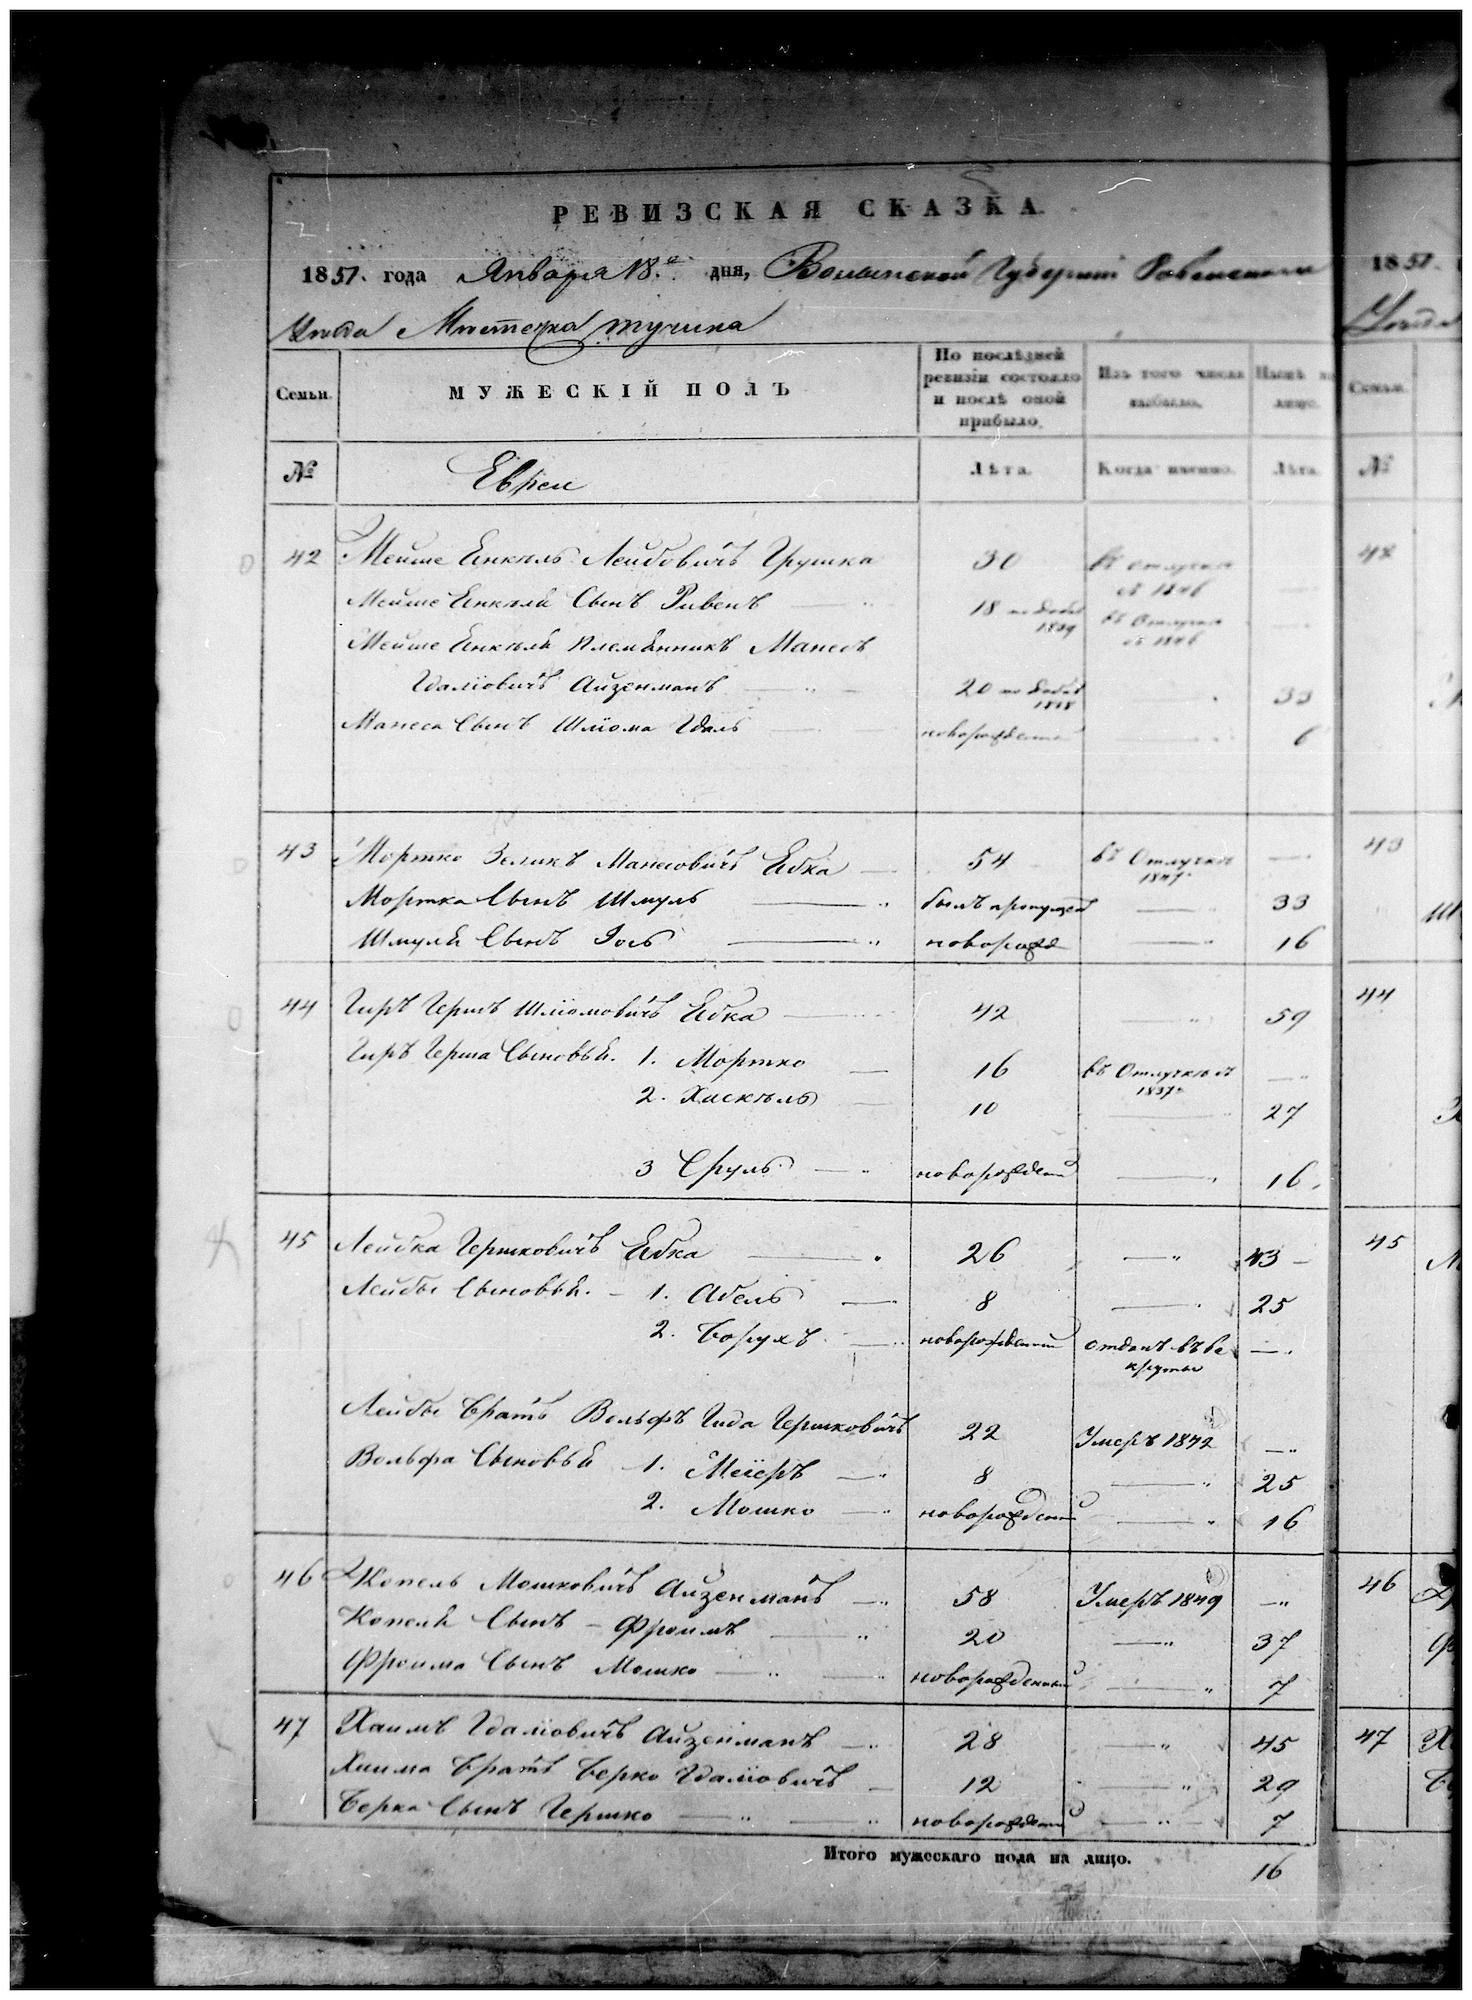 РЕВИЗСКАЯ СКАЗКА.
1851. года Января 18.го дня, Волынской Губерніи Ровенскаго
Уѣзда Мѣстечка Тучина
Семьи.
МУЖЕСКІЙ ПОЛЪ
По послѣдней ревизіи состояло и послѣ оной прибыло.
Изъ того числа выбыло.
Нынѣ на лицо.
№ Евреи Лѣта. Когда именно. Лѣта.
42 Мейше Янкель Лейбовичъ Грушка 30 въ отлучкѣ съ 1846 —
Мейше Янкеля Сынъ Рувенъ — 18 не добав 1839 въ Отлучкѣ съ 1846 —
Мейше Янкеля племянникъ Манесъ
Гдаліовичъ Айзенманъ — 20 не добав — 33
Манеса Сынъ Шліома Гдаль — новорожденный — 6
43 Мортко Зеликъ Манесовичъ Ебка — 54 въ Отлучкѣ 1847 —
Мортка Сынъ Шмуль — былъ пропущен — 33
Шмуля Сынъ Іось — новорожд — 16
44 Гиръ Гершъ Шліомовичъ Ебка — 42 — 59
Гиръ Герша Сыновья. 1. Мортко — 16 въ Отлучкѣ съ 1837 —
2. Хаскель — 10 — 27
3 Сруль — новорожден — 16
45 Лейбка Гершковичъ Ебка — 26 — 43
Лейбы Сыновья. — 1. Абель — 8 — 25
2. Борухъ — новорожденный отданъ въ рекруты —
Лейбы братъ Вольфъ Гида Гершковичъ 22 Умеръ 1842 —
Вольфа Сыновья 1. Меіеръ — 8 — 25
2. Мошко — новорожден — 16
46 Копель Мошковичъ Айзенманъ — 58 Умеръ 1849 —
Копеля Сынъ — Фроимъ — 20 — 37
Фроима Сынъ Мошко — новорожденный — 7
47 Хаимъ Гдаліовичъ Айзенманъ — 28 — 45
Хаима братъ Берко Гдаліовичъ — 12 — 29
Берка Сынъ Гершко — новорожден — 7
Итого мужескаго пола на лицо. 16
1851.
Уѣзда
Семьи.
№
42
43
44
45
46
47